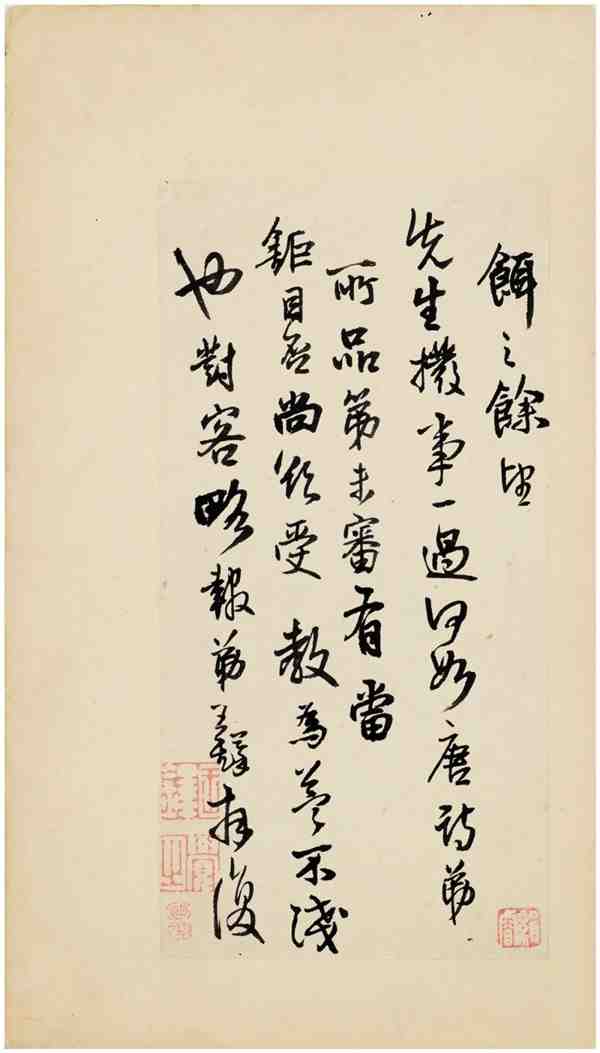 餌之餘望
先生撥事一過何如唐詩弟
所品第未審有當
鉅目否尚欲受教為益不淺
也對客略報弟王鐸拜復